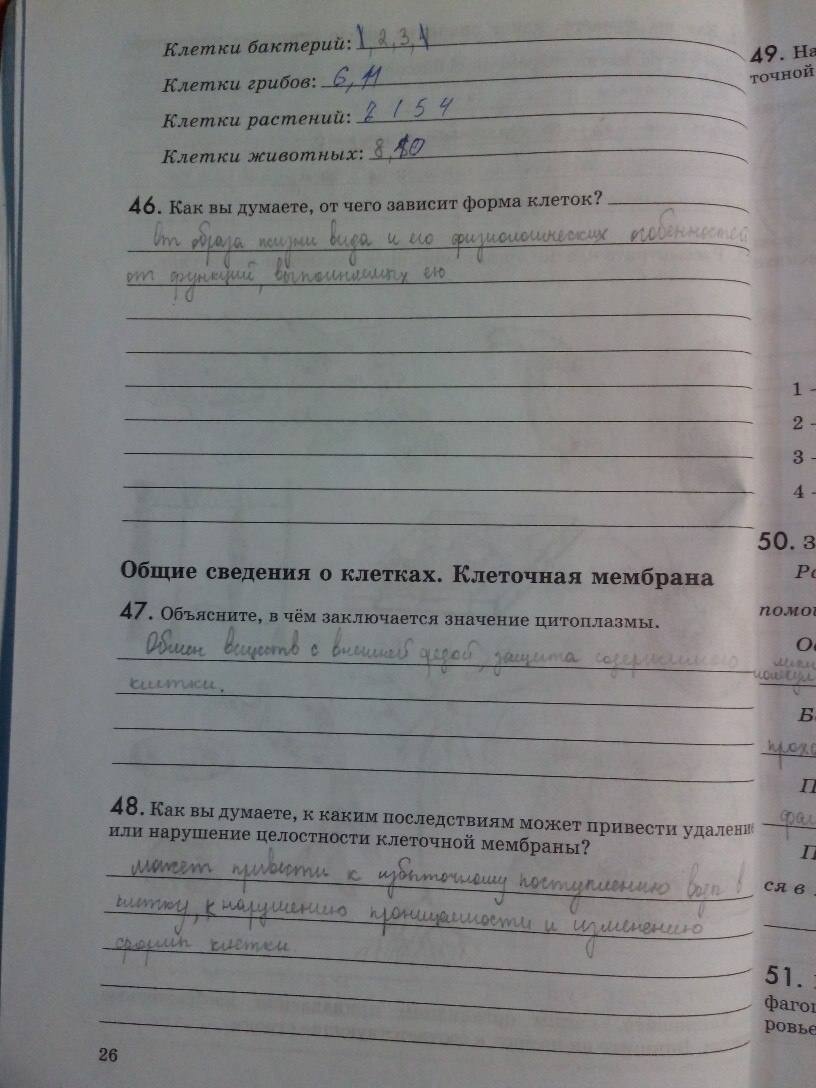 Клетки бактерий: 1, 2, 3,
Клетки грибов: 6, 11
Клетки растений: 2 1 5 4
Клетки животных: 8, 10
46. Как вы думаете, от чего зависит форма клеток?
От образа жизни вида и его физиологических особенностей
от функций, выполняемых ею
Общие сведения о клетках. Клеточная мембрана
47. Объясните, в чём заключается значение цитоплазмы.
Обмен веществ с внешней средой, защита содержимого
клетки.
48. Как вы думаете, к каким последствиям может привести удаление
или нарушение целостности клеточной мембраны?
может привести к избыточному поступлению воды в
клетку, к нарушению проницаемости и изменению
формы клетки.
26
49. На
точной
1 –
2 –
3 –
4 –
50. З
Ро
помо
Ос
Б
прохо
П
П
ся в
51.
фагоц
ровье